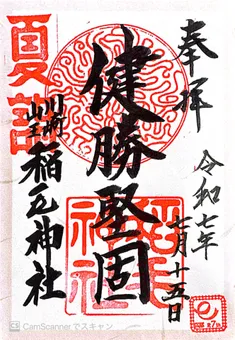 奉拝
令和七年
七月十五日
健勝堅固
夏詣
山王
稲毛神社
稲毛神社
CamScanner でスキャン